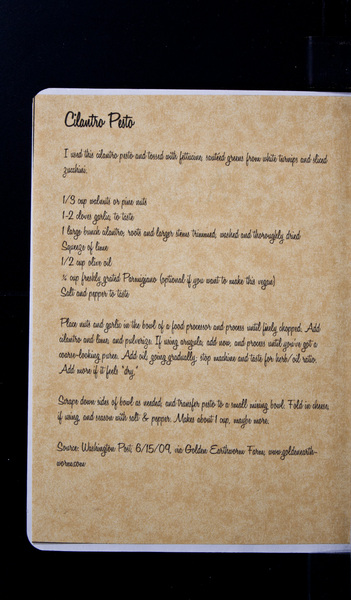 Cilantro Pesto
I used this cilantro pesto and tossed with fettucine, sauteed greens from white turnips and sliced
zucchini.
1/3 cup walnuts or pine nuts
1-2 cloves garlic, to taste
1 large bunch cilantro, roots and larger stems trimmed, washed and thoroughly dried
Squeeze of lime
1/2 cup olive oil
¼ cup freshly grated Parmigiano (optional if you want to make this vegan)
Salt and pepper to taste
Place nuts and garlic in the bowl of a food processor and process until finely chopped. Add
cilantro and lime, and pulverize. If using arugula, add now, and process until you've got a
coarse-looking puree. Add oil, going gradually; stop machine and taste for herb/oil ratio.
Add more if it feels "dry."
Scrape down sides of bowl as needed, and transfer pesto to a small mixing bowl. Fold in cheese,
if using, and season with salt & pepper. Makes about 1 cup, maybe more.
Source: Washington Post, 6/15/09, via Golden Earthworm Farm; www.goldenearth-
worm.com